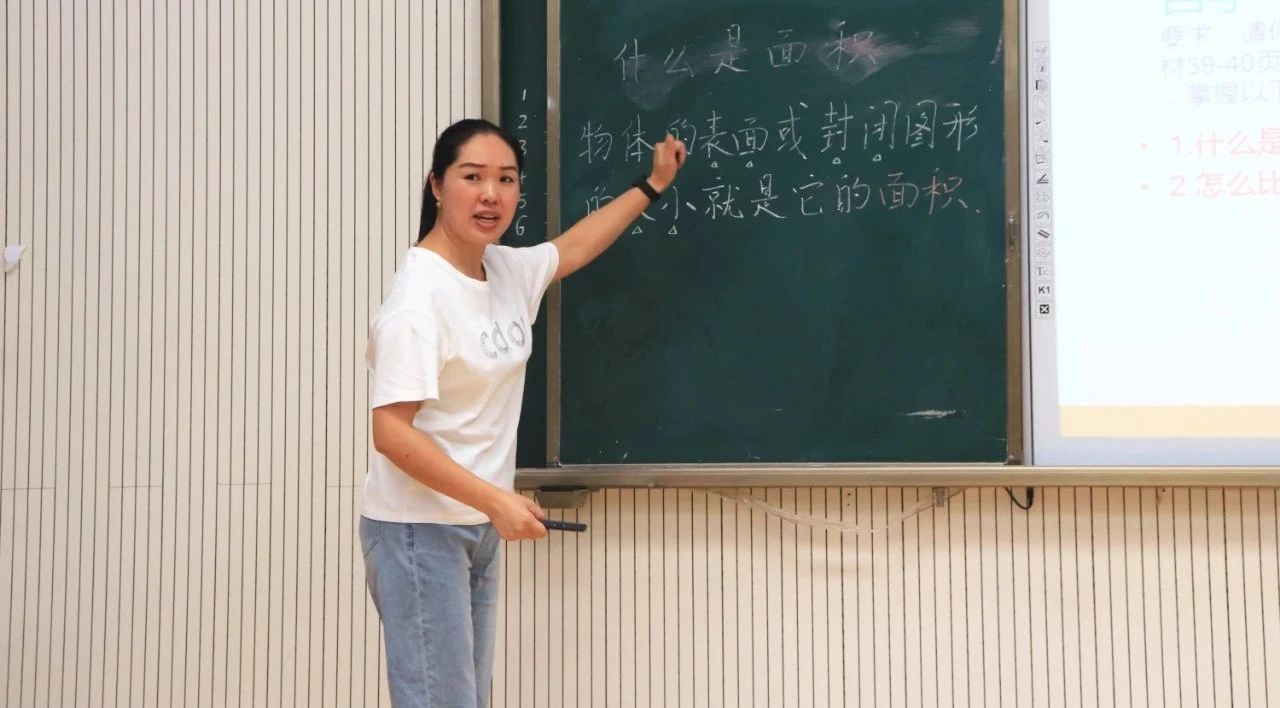 什么是面积
1
2
3
5
6
物体的表面或封闭图形
的大小就是它的面积.
cdol
要求：请你
材39-40页
，掌握以下
1.什么是
2.怎么比
K1